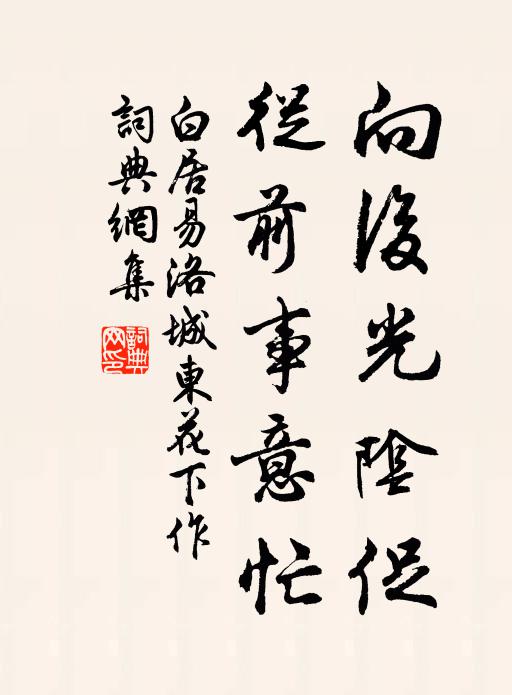 向後光陰促
從前事意忙
白居易洛城東花下作
詞典網集
詞典網印